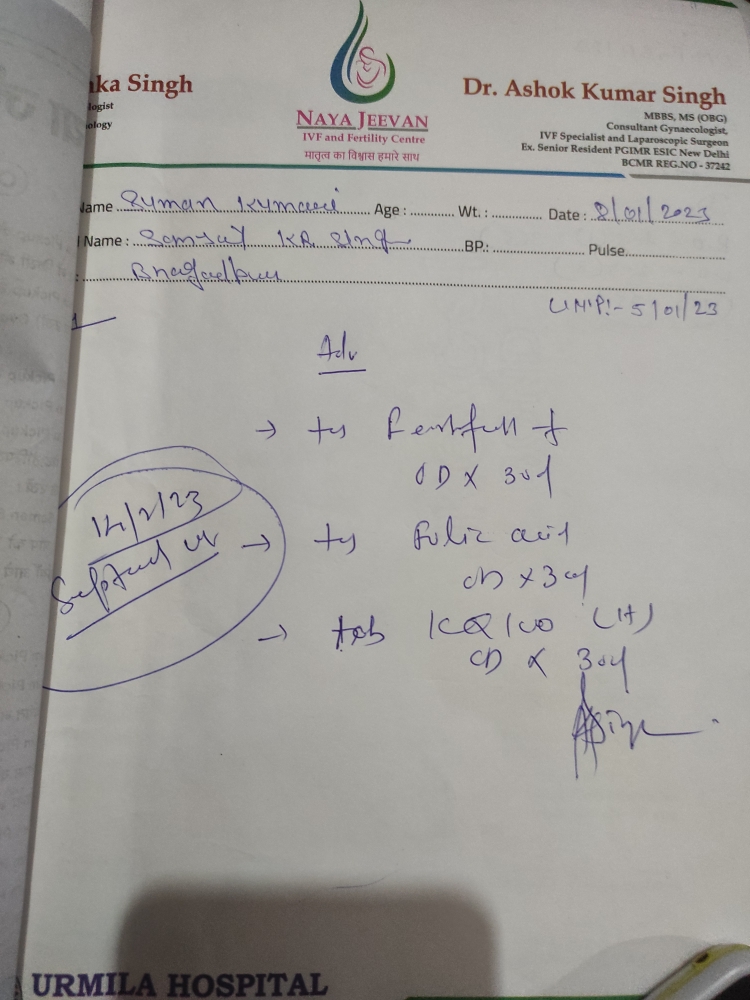 nka Singh
logist
ology
NAYA JEEVAN
IVF and Fertility Centre
मातृत्व का विश्वास हमारे साथ
Dr. Ashok Kumar Singh
MBBS, MS (OBG)
Consultant Gynaecologist,
IVF Specialist and Laparoscopic Surgeon
Ex. Senior Resident PGIMR ESIC New Delhi
BCMR REG.NO - 37242
Name Suman Kumari Age : Wt. : Date : 8/01/2023
Name : KR Singh BP.: Pulse
:
LMP:- 5/01/23
Adv
→
OD x 30d
14/2/23
→ Folic acid
OD x 30d
→ tab
OD x 30d
URMILA HOSPITAL